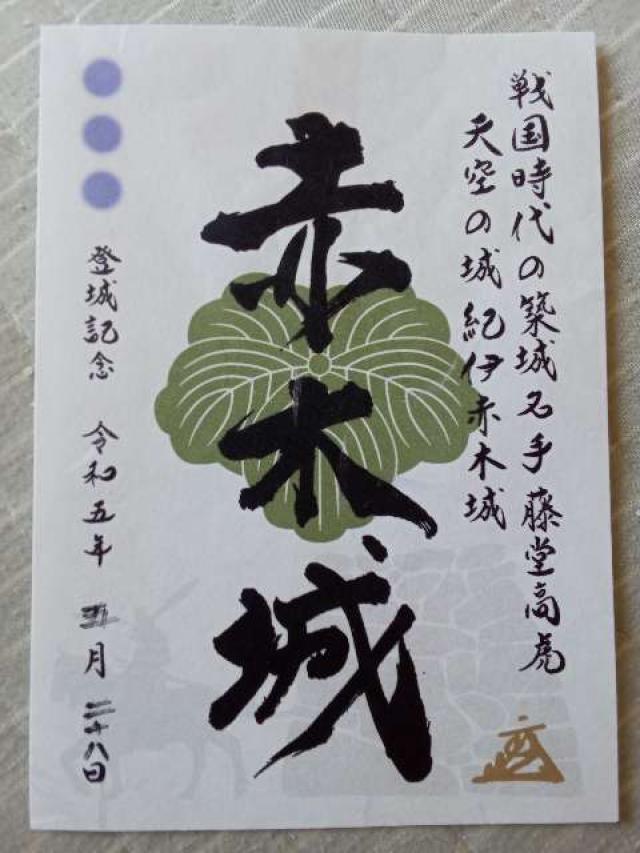 戦国時代の築城名手 藤堂高虎
天空の城 紀伊赤木城
赤木城
登城記念 令和五年 五月 二十八日